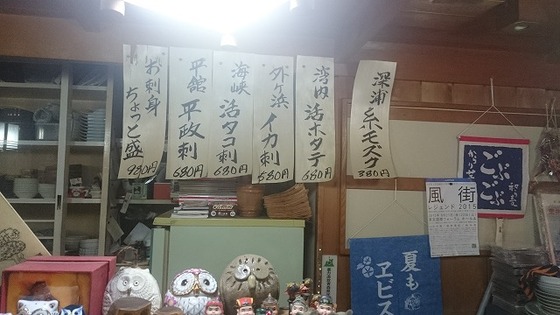 お刺身
ちょっと盛
980円
平舘
平政刺
680円
海峡
活タコ刺
680円
外ヶ浜
イカ刺
580円
湾内
活ホタテ
680円
深浦
糸モズク
380円
ごぶ
ごぶ
風街
レジェンド2015
夏も
ヱビス